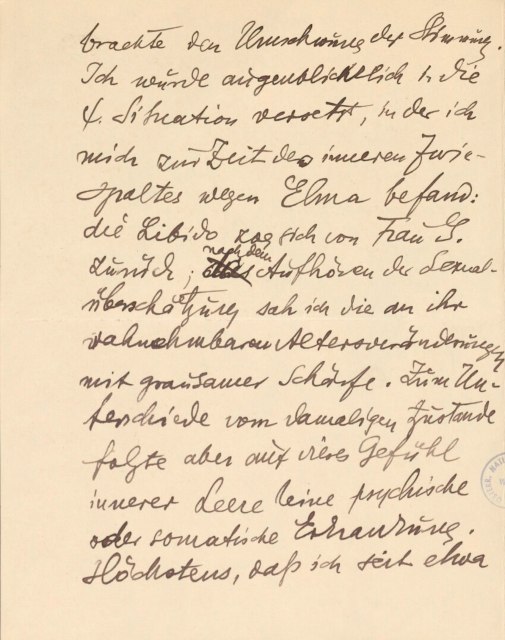 brachte den Umschwung der Stimmung.
Ich wurde augenblicklich in die
ψ. Situation versetzt, in der ich
mich zur Zeit des inneren Zwie-
spaltes wegen Elma befand:
die Libido zog sich von Frau G.
zurück; nach dem Aufhören der Sexual-
überschätzung sah ich die an ihr
wahrnehmbaren Altersveränderungen
mit grausamer Schärfe. Zum Un-
terschiede vom damaligen Zustande
folgte aber auf dieses Gefühl
innerer Leere keine psychische
oder somatische Erkrankung.
Höchstens, daß ich seit etwa